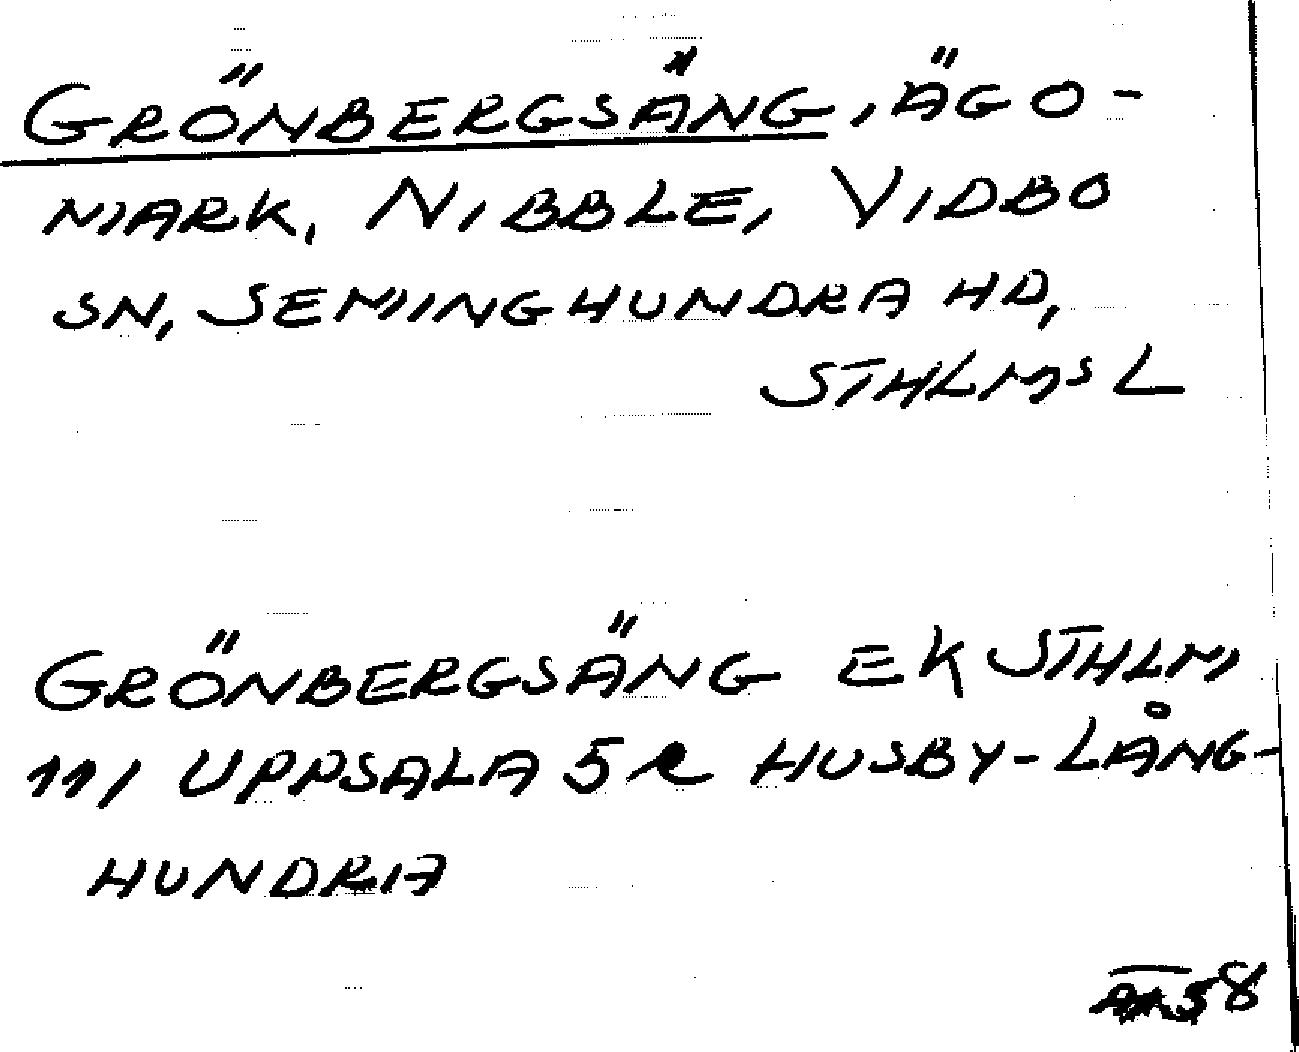 GRÖNBERGSÄNG, ÄGO-
MARK, NIBBLE, VIDBO
SN, SEMINGHUNDRA HD,
STHLMS L
GRÖNBERGSÄNG EK STHLM
111 UPPSALA 5 e HUSBY-LÅNG-
HUNDRA
58